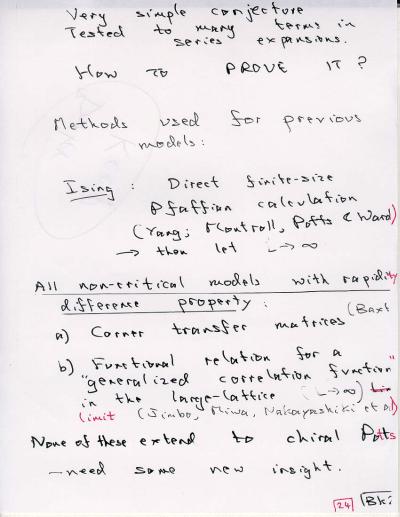 Very simple conjecture
Tested to many terms in
series expansions.
How to PROVE IT?
Methods used for previous
models:
Ising: Direct finite-size
Pfaffian calculation
(Yang; Montroll, Potts & Ward)
→ then let L→∞
All non-critical models with rapidity
difference property:
a) Corner transfer matrices (Baxt
b) Functional relation for a
"generalized correlation function"
in the large-lattice (L→∞)
limit (Jimbo, Miwa, Nakayashiki et al)
None of these extend to chiral Potts
- need some new insight.
24